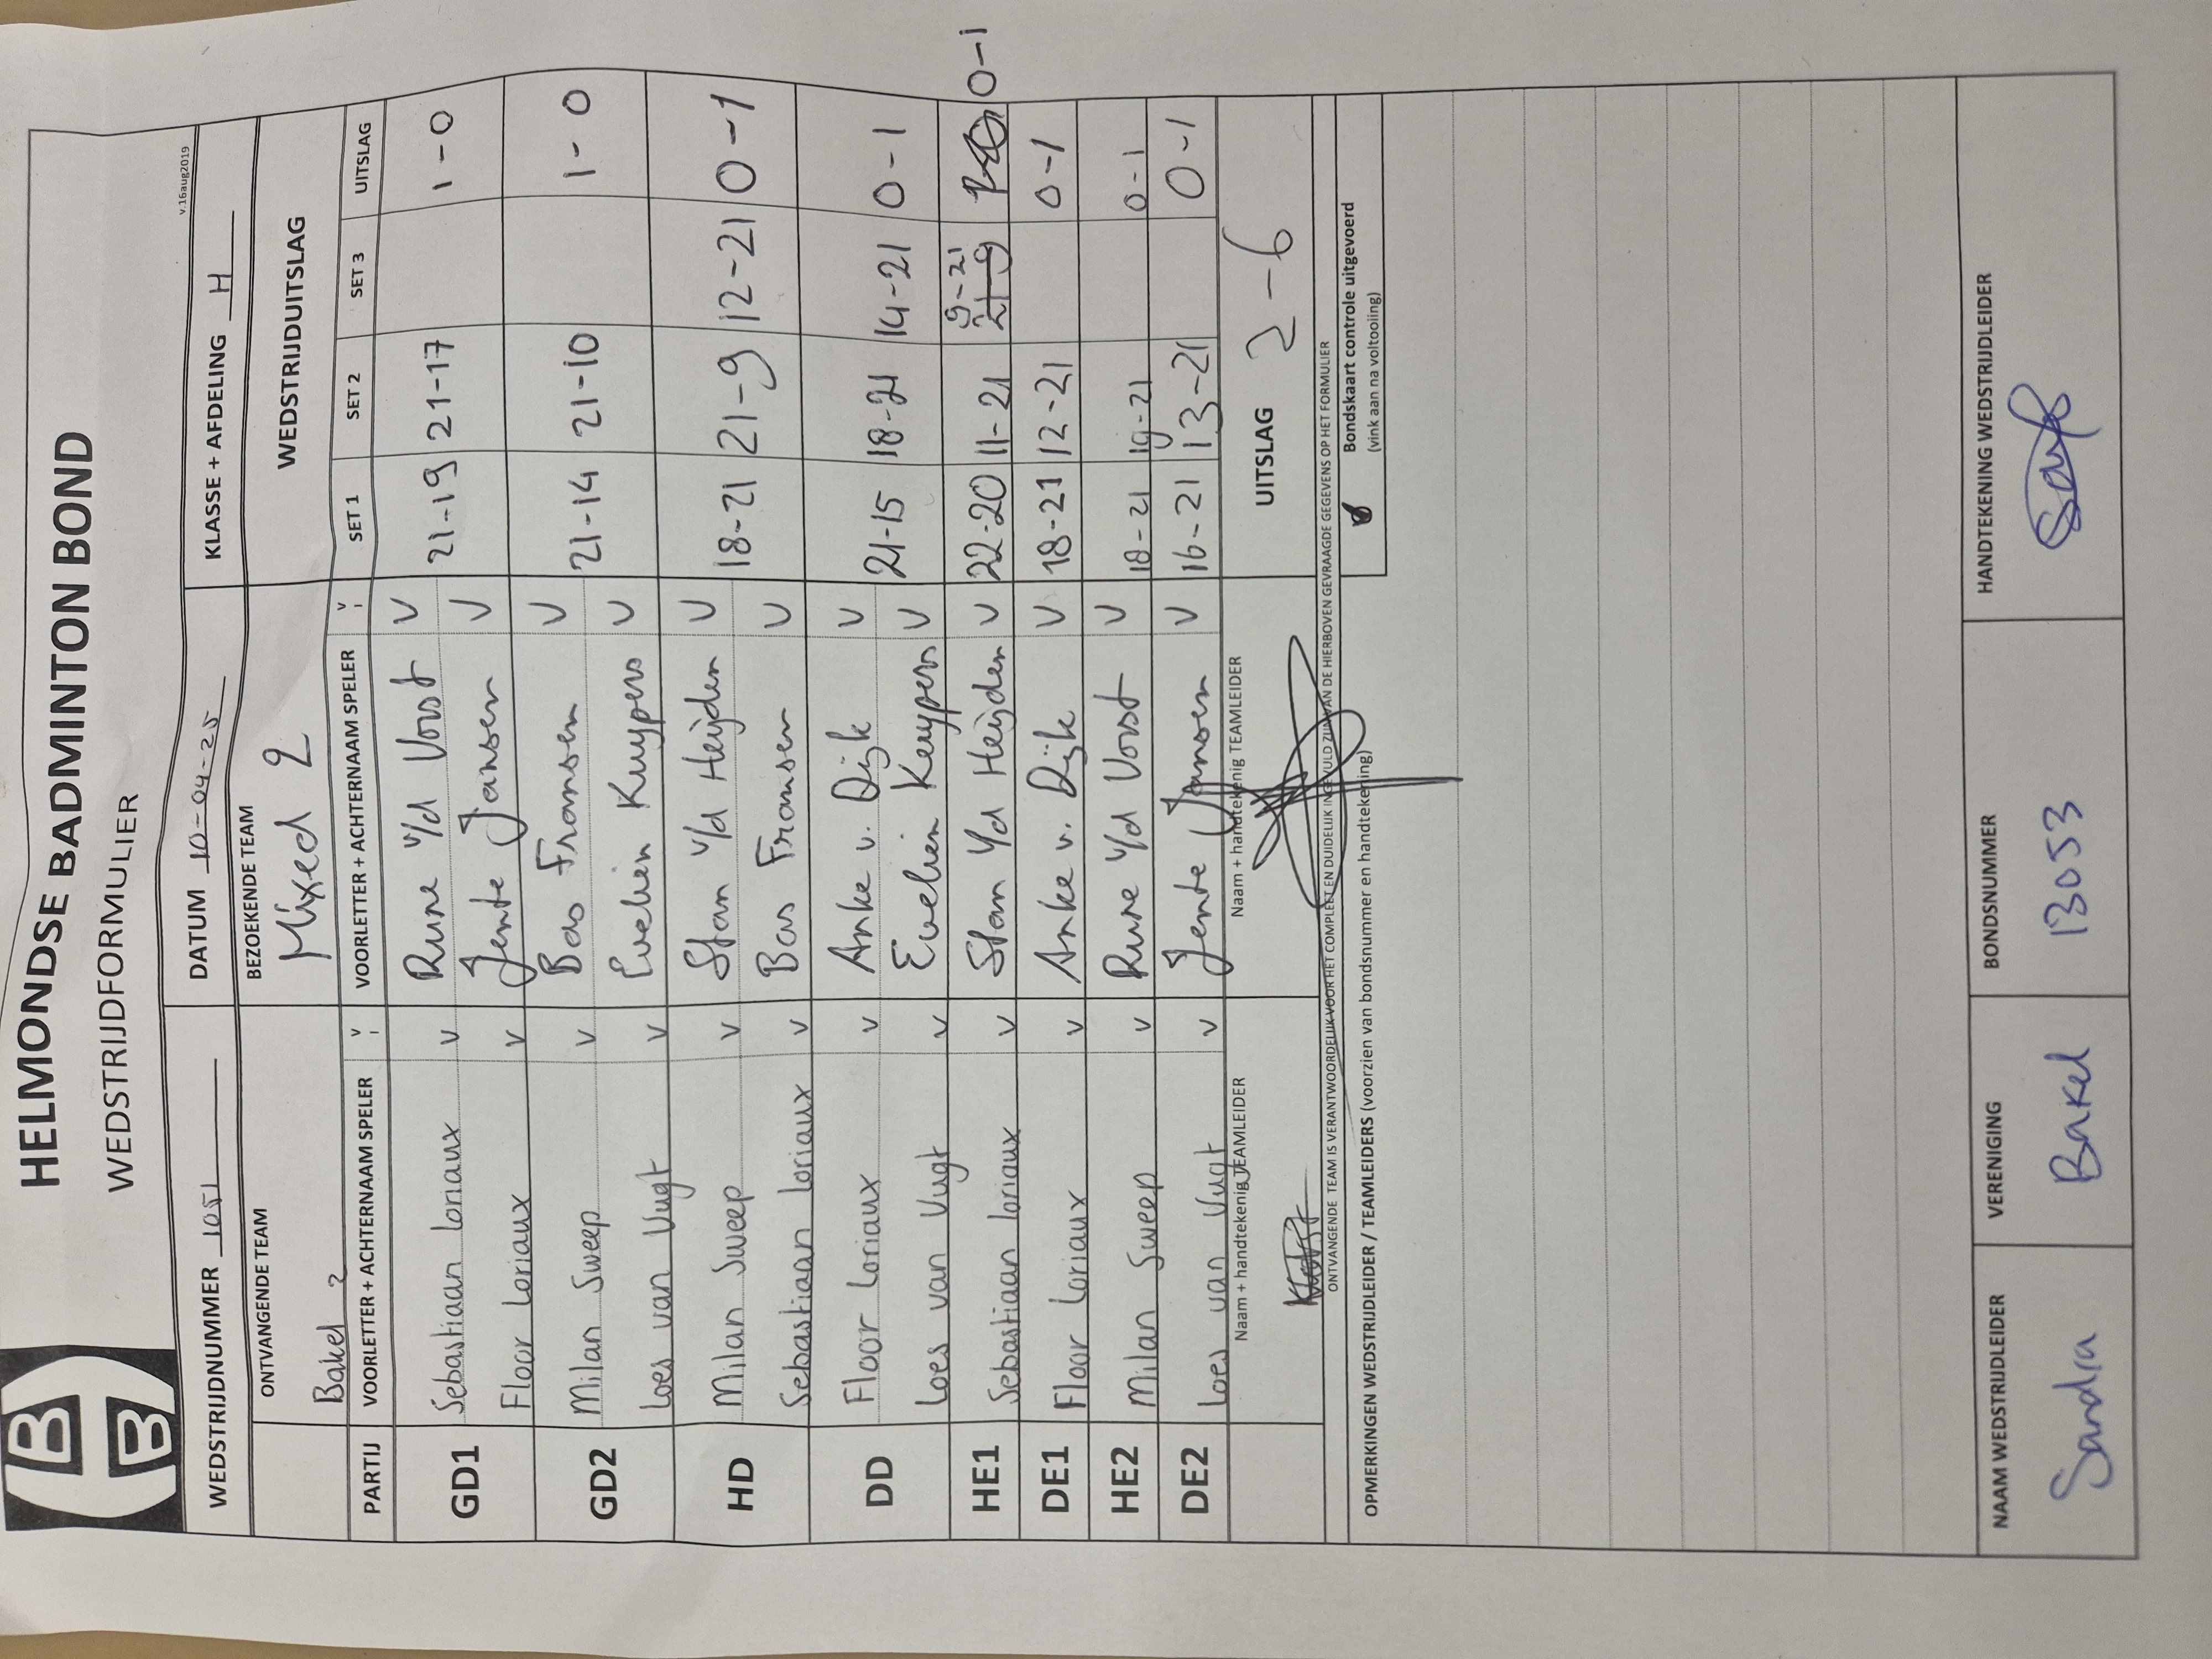 HELMONDSE BADMINTON BOND
WEDSTRIJDFORMULIER
v.16aug2019
WEDSTRIJDNUMMER 1051 DATUM 10-04-25 KLASSE + AFDELING H
ONTVANGENDE TEAM BEZOEKENDE TEAM WEDSTRIJDUITSLAG
Bakel 2 Mixed 2
PARTIJ VOORLETTER + ACHTERNAAM SPELER V VOORLETTER + ACHTERNAAM SPELER V SET 1 SET 2 SET 3 UITSLAG
GD1 Sebastiaan Loriaux v Rune v/d Vorst V 21-19 21-17 1-0
Floor Loriaux v Jente Jansen V
GD2 Milan Sweep v Bas Fransen V 21-14 21-10 1-0
Loes van Vugt v Evelien Kuypers V
HD Milan Sweep v Stan v/d Heijden V 18-21 21-9 12-21 0-1
Sebastiaan Loriaux v Bas Fransen V
DD Floor Loriaux v Anke v. Dijk V 21-15 18-21 14-21 0-1
Loes van Vugt v Evelien Kuypers V
HE1 Sebastiaan Loriaux v Stan v/d Heijden V 22-20 11-21 9-21 21-9 0-1
DE1 Floor Loriaux v Anke v. Dijk V 18-21 12-21 0-1
HE2 Milan Sweep v Rune v/d Vorst V 18-21 19-21 0-1
DE2 Loes van Vugt v Jente Jansen V 16-21 13-21 0-1
Naam + handtekenig TEAMLEIDER Naam + handtekenig TEAMLEIDER UITSLAG 2-6
ONTVANGENDE TEAM IS VERANTWOORDELIJK VOOR HET COMPLEET EN DUIDELIJK INGEVULD ZIJN VAN DE HIERBOVEN GEVRAAGDE GEGEVENS OP HET FORMULIER
OPMERKINGEN WEDSTRIJDLEIDER / TEAMLEIDERS (voorzien van bondsnummer en handtekening)
Bondskaart controle uitgevoerd
(vink aan na voltooiing)
NAAM WEDSTRIJDLEIDER VERENIGING BONDSNUMMER HANDTEKENING WEDSTRIJDLEIDER
Sandra Bakel 13053